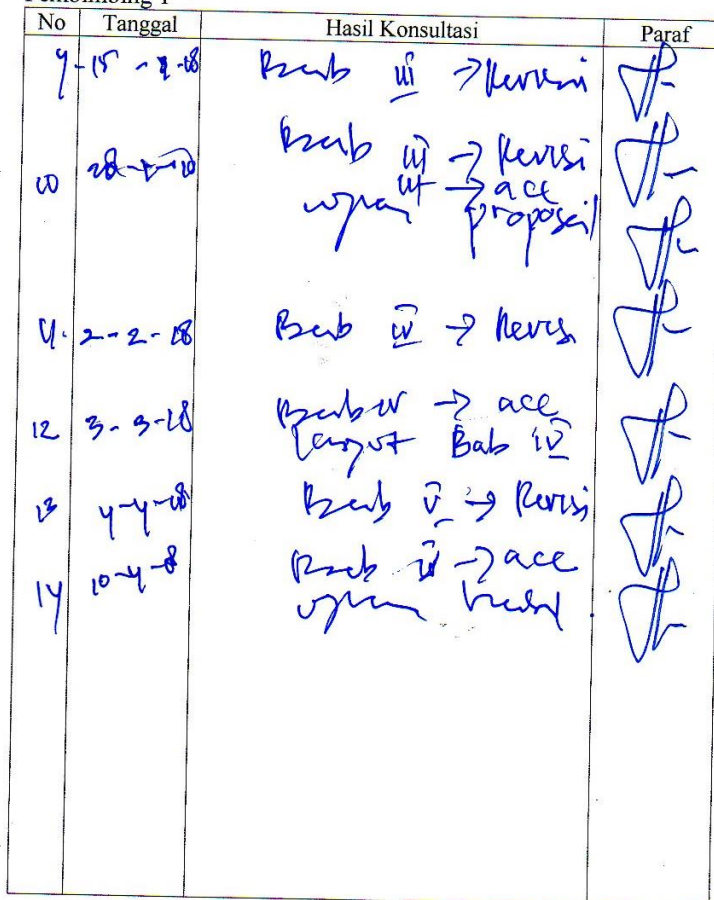 Pembimbing 1
No Tanggal Hasil Konsultasi Paraf
9 - 15 - -18 Bab iii → Revisi
10 Bab iii → Revisi
→ acc
ujian proposal
11. 2-2-18 Bab iv → Revisi
12 3-3-18 Bab iv → acc
Lanjut Bab iv
13 4-4-18 Bab v → Revisi
14 10-4-8 Bab → acc
ujian hasil